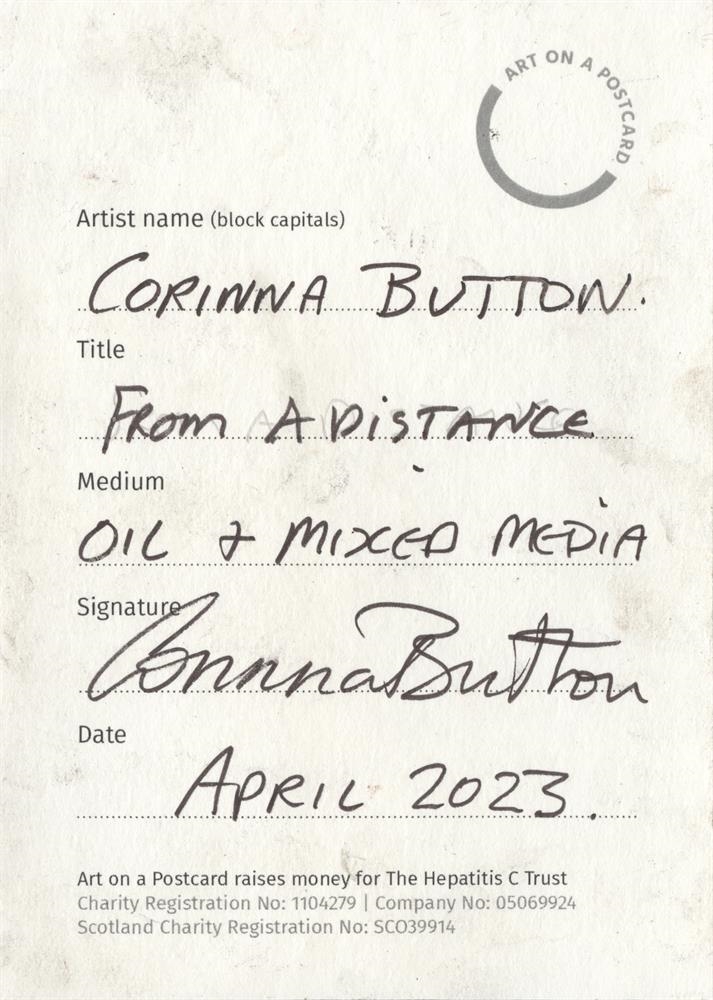 ART ON A POSTCARD
Artist name (block capitals)
CORINNA BUTTON.
Title
FROM A DISTANCE
Medium
OIL & MIXED MEDIA
Signature
Corinna Button
Date
APRIL 2023.
Art on a Postcard raises money for The Hepatitis C Trust
Charity Registration No: 1104279 | Company No: 05069924
Scotland Charity Registration No: SCO39914